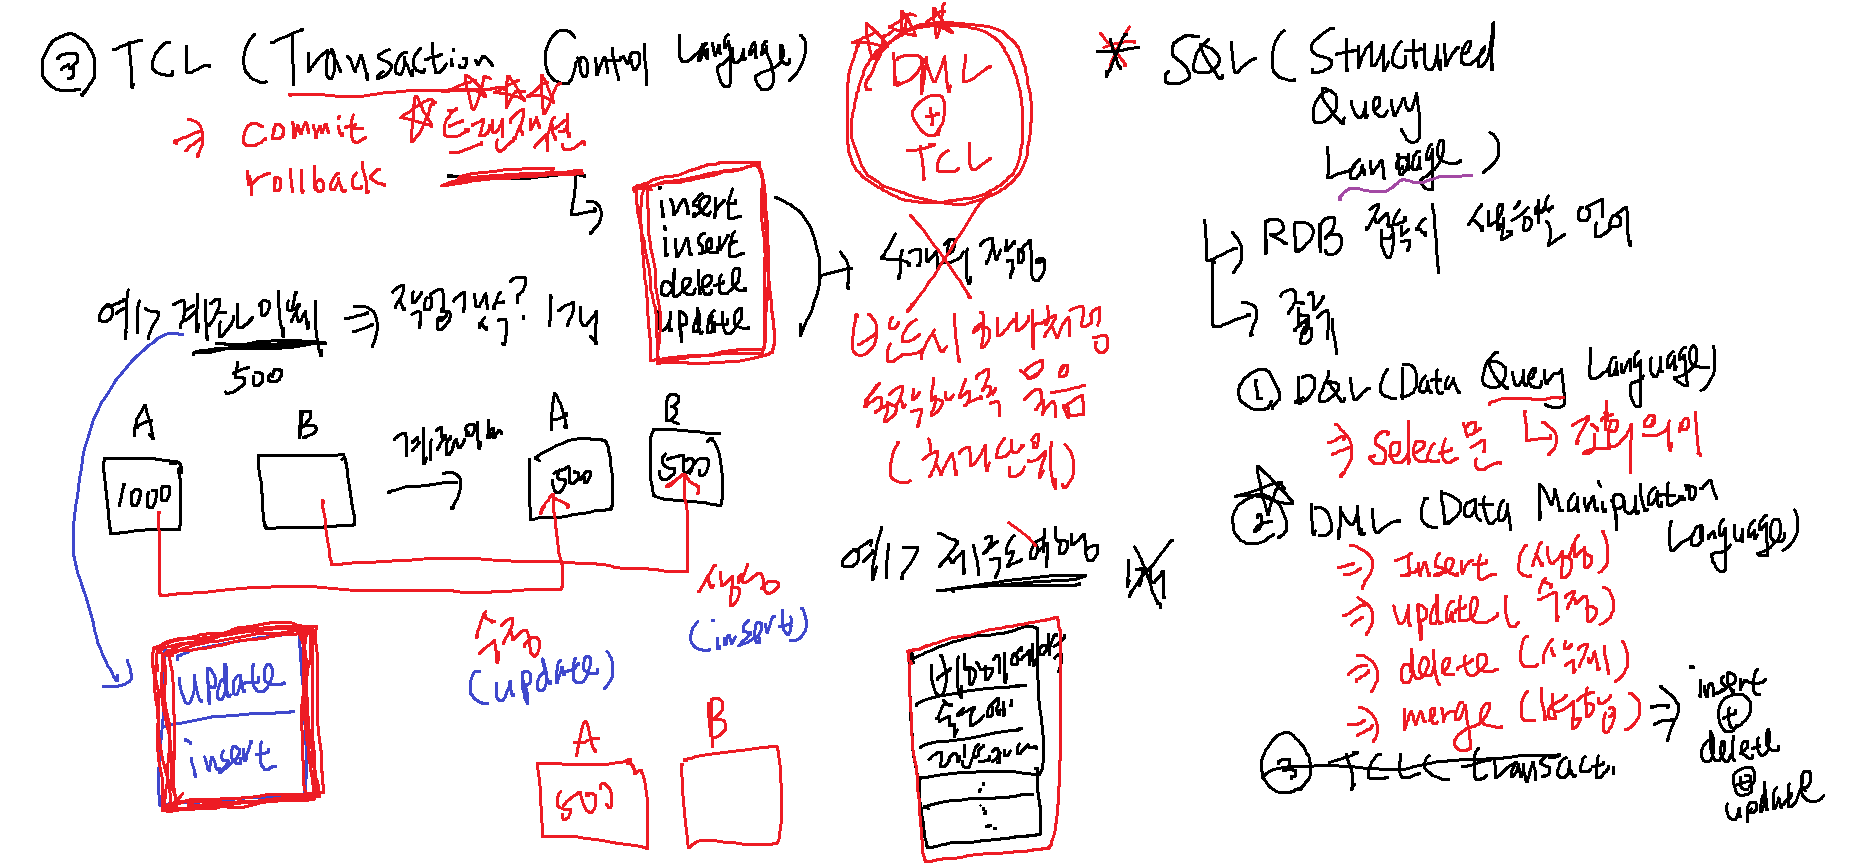 ③ TCL (Transaction Control Language)
⇒ commit
rollback
트랜잭션
insert
insert
delete
update
DML
+
TCL
4개의 작업
반드시 하나처럼
동작하도록 묶음
(처리단위)
예> 계좌이체 ⇒ 작업갯수? 1개
500
A
1000
B
계좌이체
A
500
B
500
수정
(update)
삽입
(insert)
update
insert
A
500
B
예> 제주도여행
비행기예약
숙소예약
렌트카예약
* SQL (Structured
Query
Language)
→ RDB 접속시 사용하는 언어
→ 종류
① DQL (Data Query Language)
⇒ Select문 → 조회의미
② DML (Data Manipulation
Language)
⇒ Insert (삽입)
⇒ update (수정)
⇒ delete (삭제)
⇒ merge (병합) ⇒ insert
+
delete
+
update
③ TCL (transacti